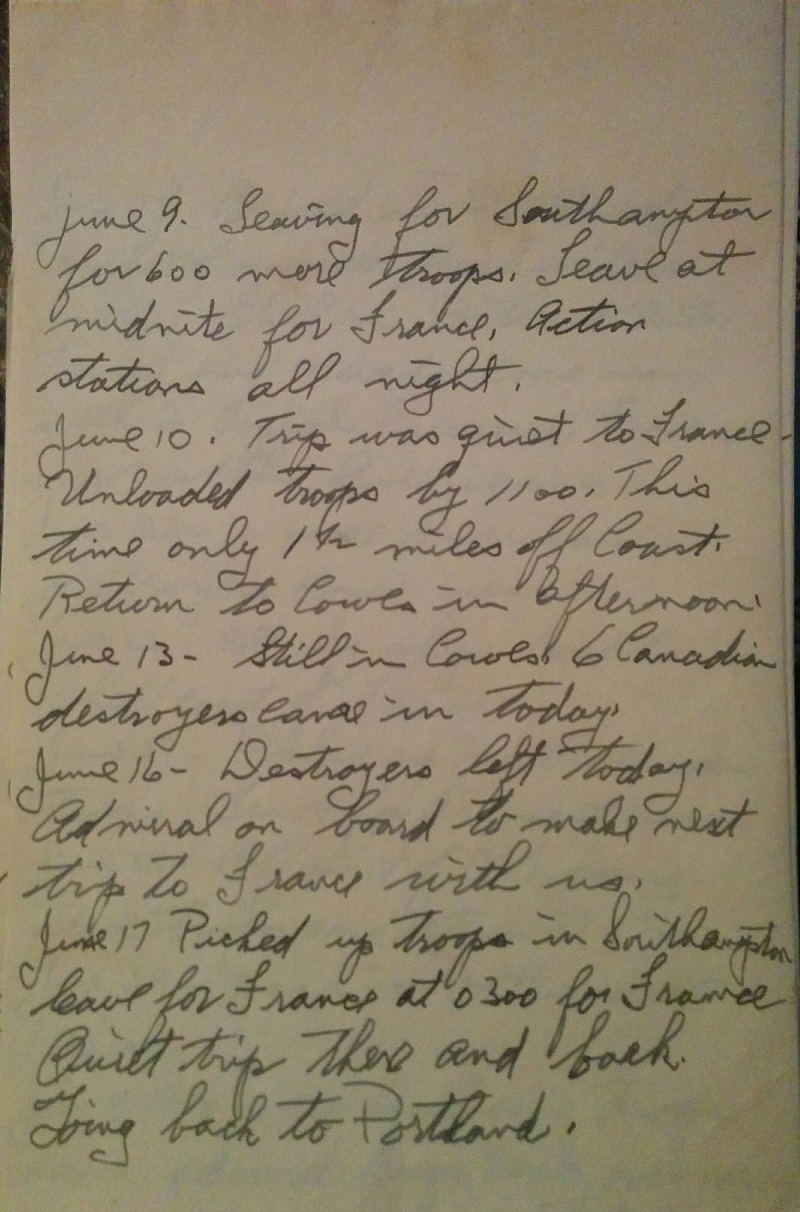 June 9. Leaving for Southampton
for 600 more troops. Leave at
midnite for France. Action
stations all night.
June 10. Trip was quiet to France.
Unloaded troops by 1100. This
time only 1½ miles off Coast.
Return to Cowes in afternoon.
June 13- Still in Cowes. 6 Canadian
destroyers came in today.
June 16- Destroyers left today.
Admiral on board to make next
trip to France with us.
June 17 Picked up troops in Southampton
leave for France at 0300 for France
Quiet trip there and back.
Going back to Portland.